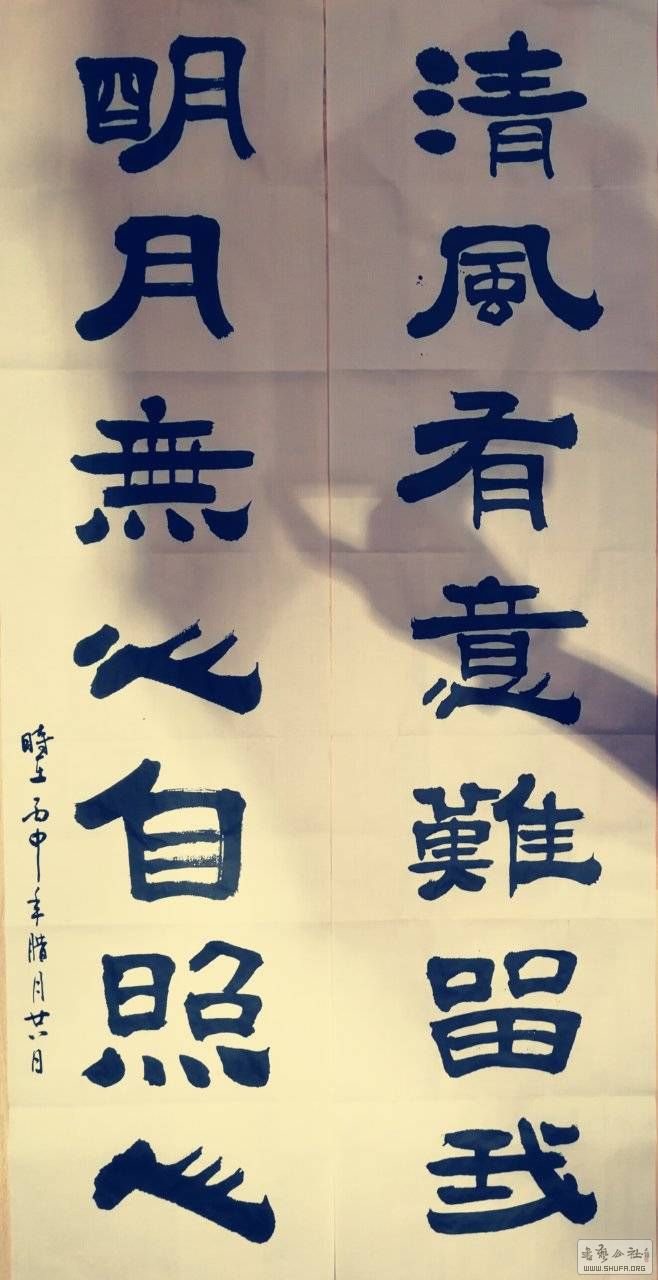 清風有意難留我
明月無心自照心
時在丙申年腊月廿八日
書藝公社
WWW.SHUFA.ORG